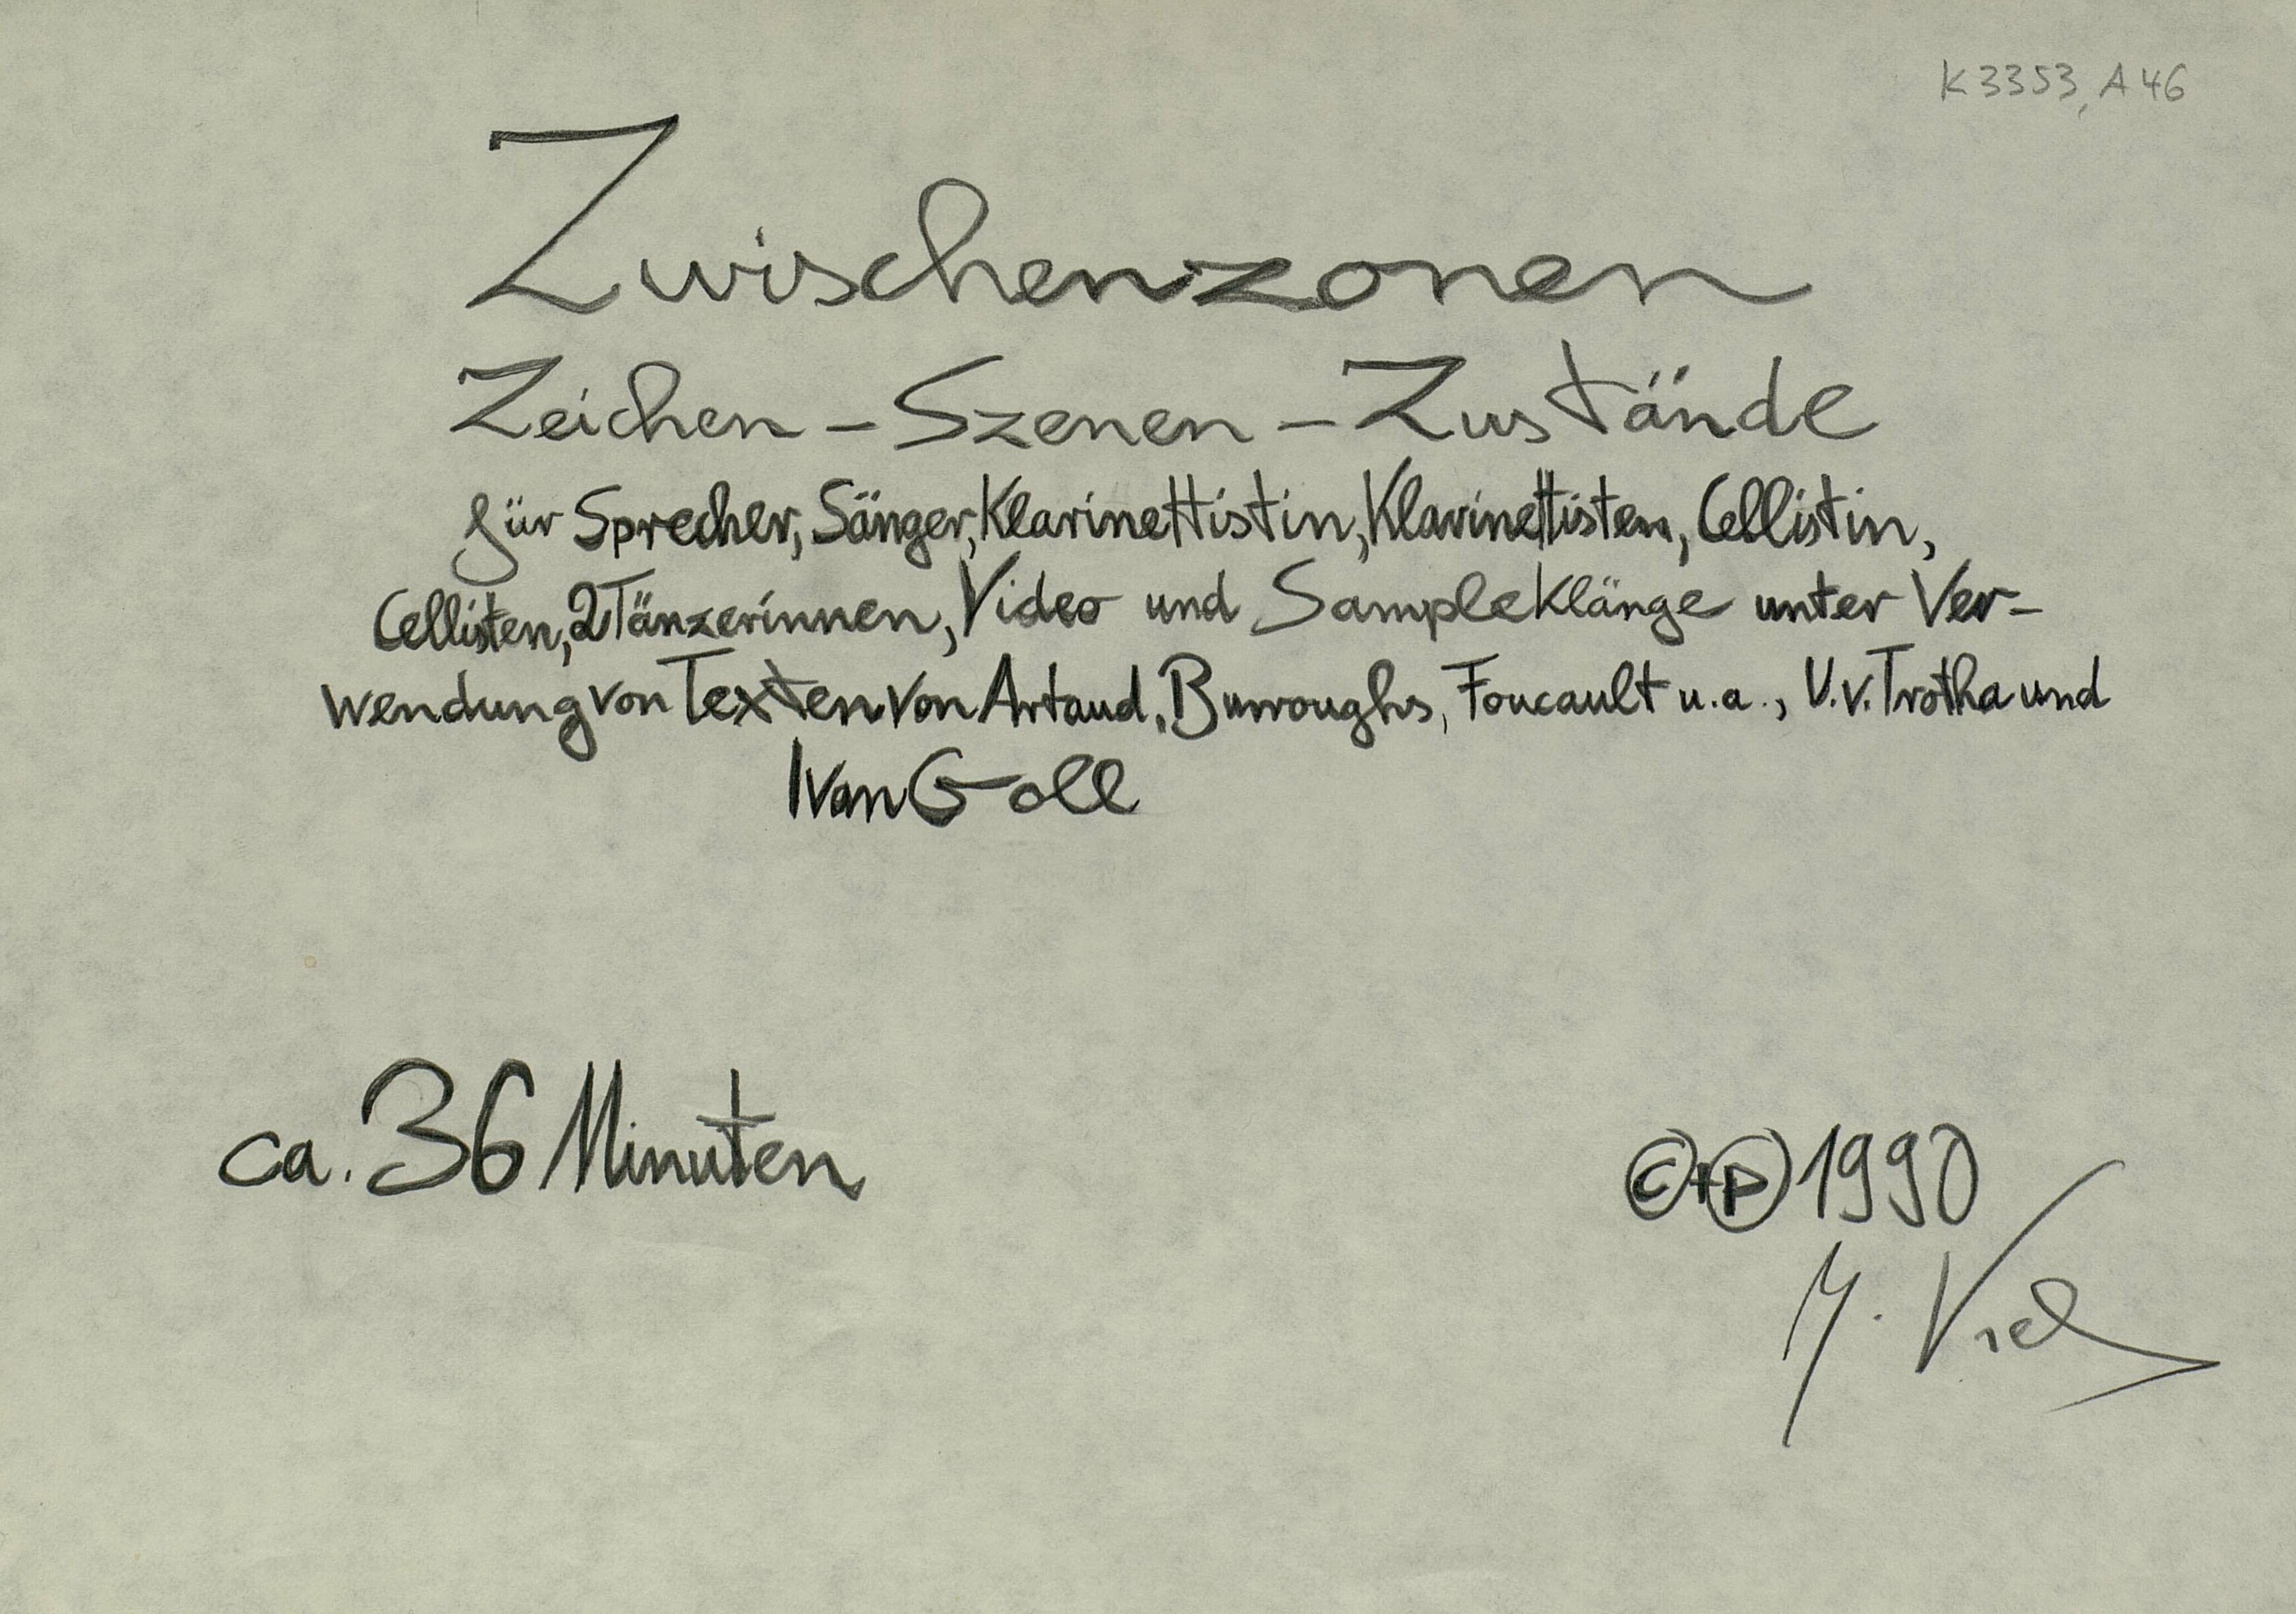 K 3353, A 46
Zwischenzonen
Zeichen – Szenen – Zustände
für Sprecher, Sänger, Klarinettistin, Klarinettisten, Cellistin,
Cellisten, 2 Tänzerinnen, Video und Sampleklänge unter Ver-
wendung von Texten von Artaud, Burroughs, Foucault u.a., U.v. Trotha und
Ivan Goll
ca. 36 Minuten
©+℗ 1990